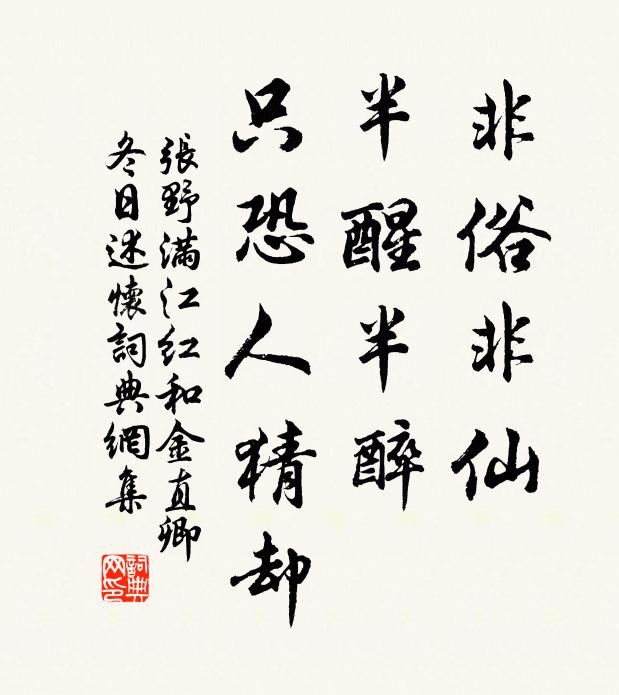 非俗非仙
半醒半醉
只恐人猜却
張野滿江紅和金直卿
冬日述懷詞典網集
詞典
网印